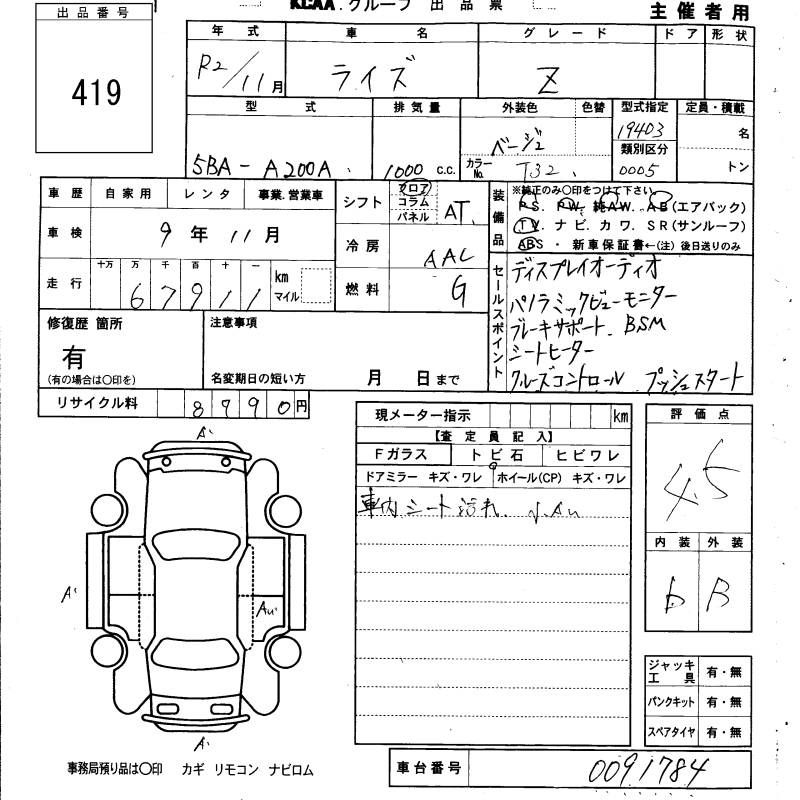 KCAA グループ 出品票
主催者用
出品番号
419
年式 車名 グレード ドア 形状
R2/11月 ライズ Z
型式 排気量 外装色 色替 型式指定 定員・積載
5BA-A200A 1000 c.c. ベージュ 19403 名
カラーNo. T32 類別区分 0005 トン
車歴 自家用 レンタ 事業.営業車
車検 9年11月
走行 十万 万 千 百 十 一
67911 km マイル
シフト フロア コラム パネル AT
冷房 AAC
燃料 G
装備品
※純正のみ〇印をつけて下さい。
PS. PW. 純AW. AB(エアバック)
TV. ナビ. カワ. SR(サンルーフ)
ABS ・ 新車保証書←(注) 後日送りのみ
セールスポイント
ディスプレイオーディオ
パノラミックビューモニター
ブレーキサポート. BSM
シートヒーター
クルーズコントロール プッシュスタート
修復歴 箇所
有
(有の場合は〇印を)
注意事項
名変期日の短い方 月 日まで
リサイクル料 8790円
現メーター指示 km
【査定員記入】
Fガラス トビ石 ヒビワレ
ドアミラー キズ・ワレ ホイール(CP) キズ・ワレ
車内シート汚れ
評価点
4.5
内装 外装
b B
ジャッキ工具 有・無
パンクキット 有・無
スペアタイヤ 有・無
A'
A'
AU'
A'
事務局預り品は〇印 カギ リモコン ナビロム
車台番号 0091784